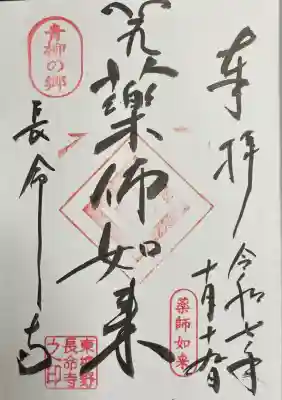 奉拝
令和七年
十月十九日
薬師如来
薬師如来
青柳の郷
長命寺
長命寺
之印